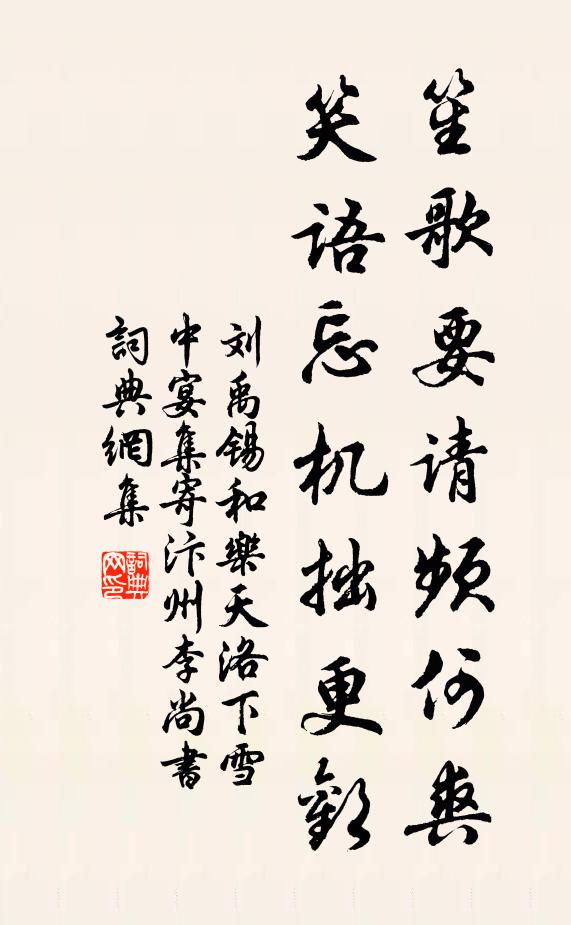 笙歌要请频何爽
笑语忘机拙更歡
刘禹锡和樂天洛下雪
中宴集寄汴州李尚書
詞典網集
詞典
网印